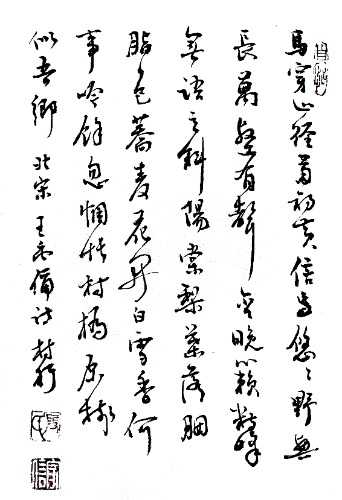 馬穿山徑菊初黃信馬悠〻野興
長萬壑有聲含晚籟數峰
無語立斜陽棠梨葉落胭
脂色蕎麥花開白雪香何
事吟餘忽惆悵村橋原樹
似吾鄉 北宋王禹偁詩村行